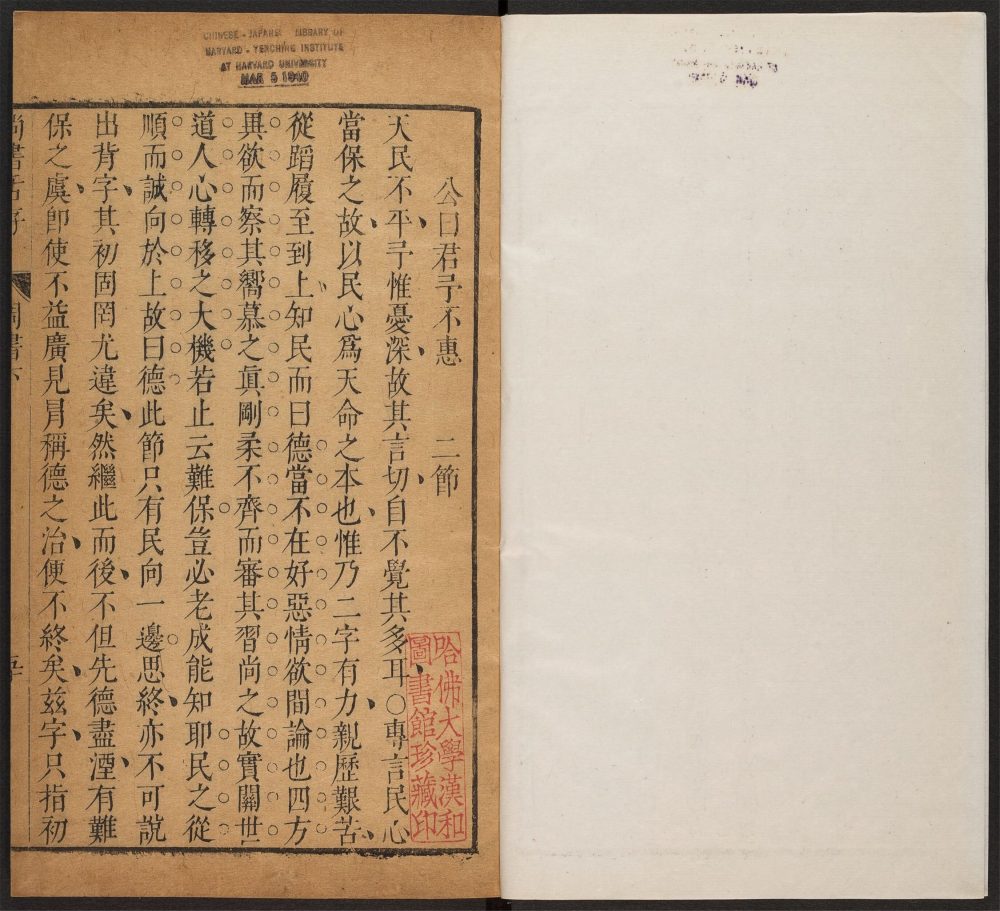 CHINESE - JAPANESE LIBRARY OF
HARVARD - YENCHING INSTITUTE
AT HARVARD UNIVERSITY
MAR 5 1940
公曰君予不惠　二節
天民不平予惟憂深故其言切自不覺其多耳○專言民心
當保之故以民心爲天命之本也惟乃二字有力親歷艱苦
從蹈履至到上知民而曰德當不在好惡情欲間論也四方
異欲而察其嚮慕之眞剛柔不齊而審其習尚之故實關世
道人心轉移之大機若止云難保豈必老成能知耶民之從
順而誠向於上故曰德此節只有民向一邊思終亦不可說
出背字其初固罔尤違矣然繼此而後不但先德盡湮有難
保之虞卽使不益廣見冐稱德之治便不終矣茲字只指初
哈佛大學漢和
圖書館珍藏印